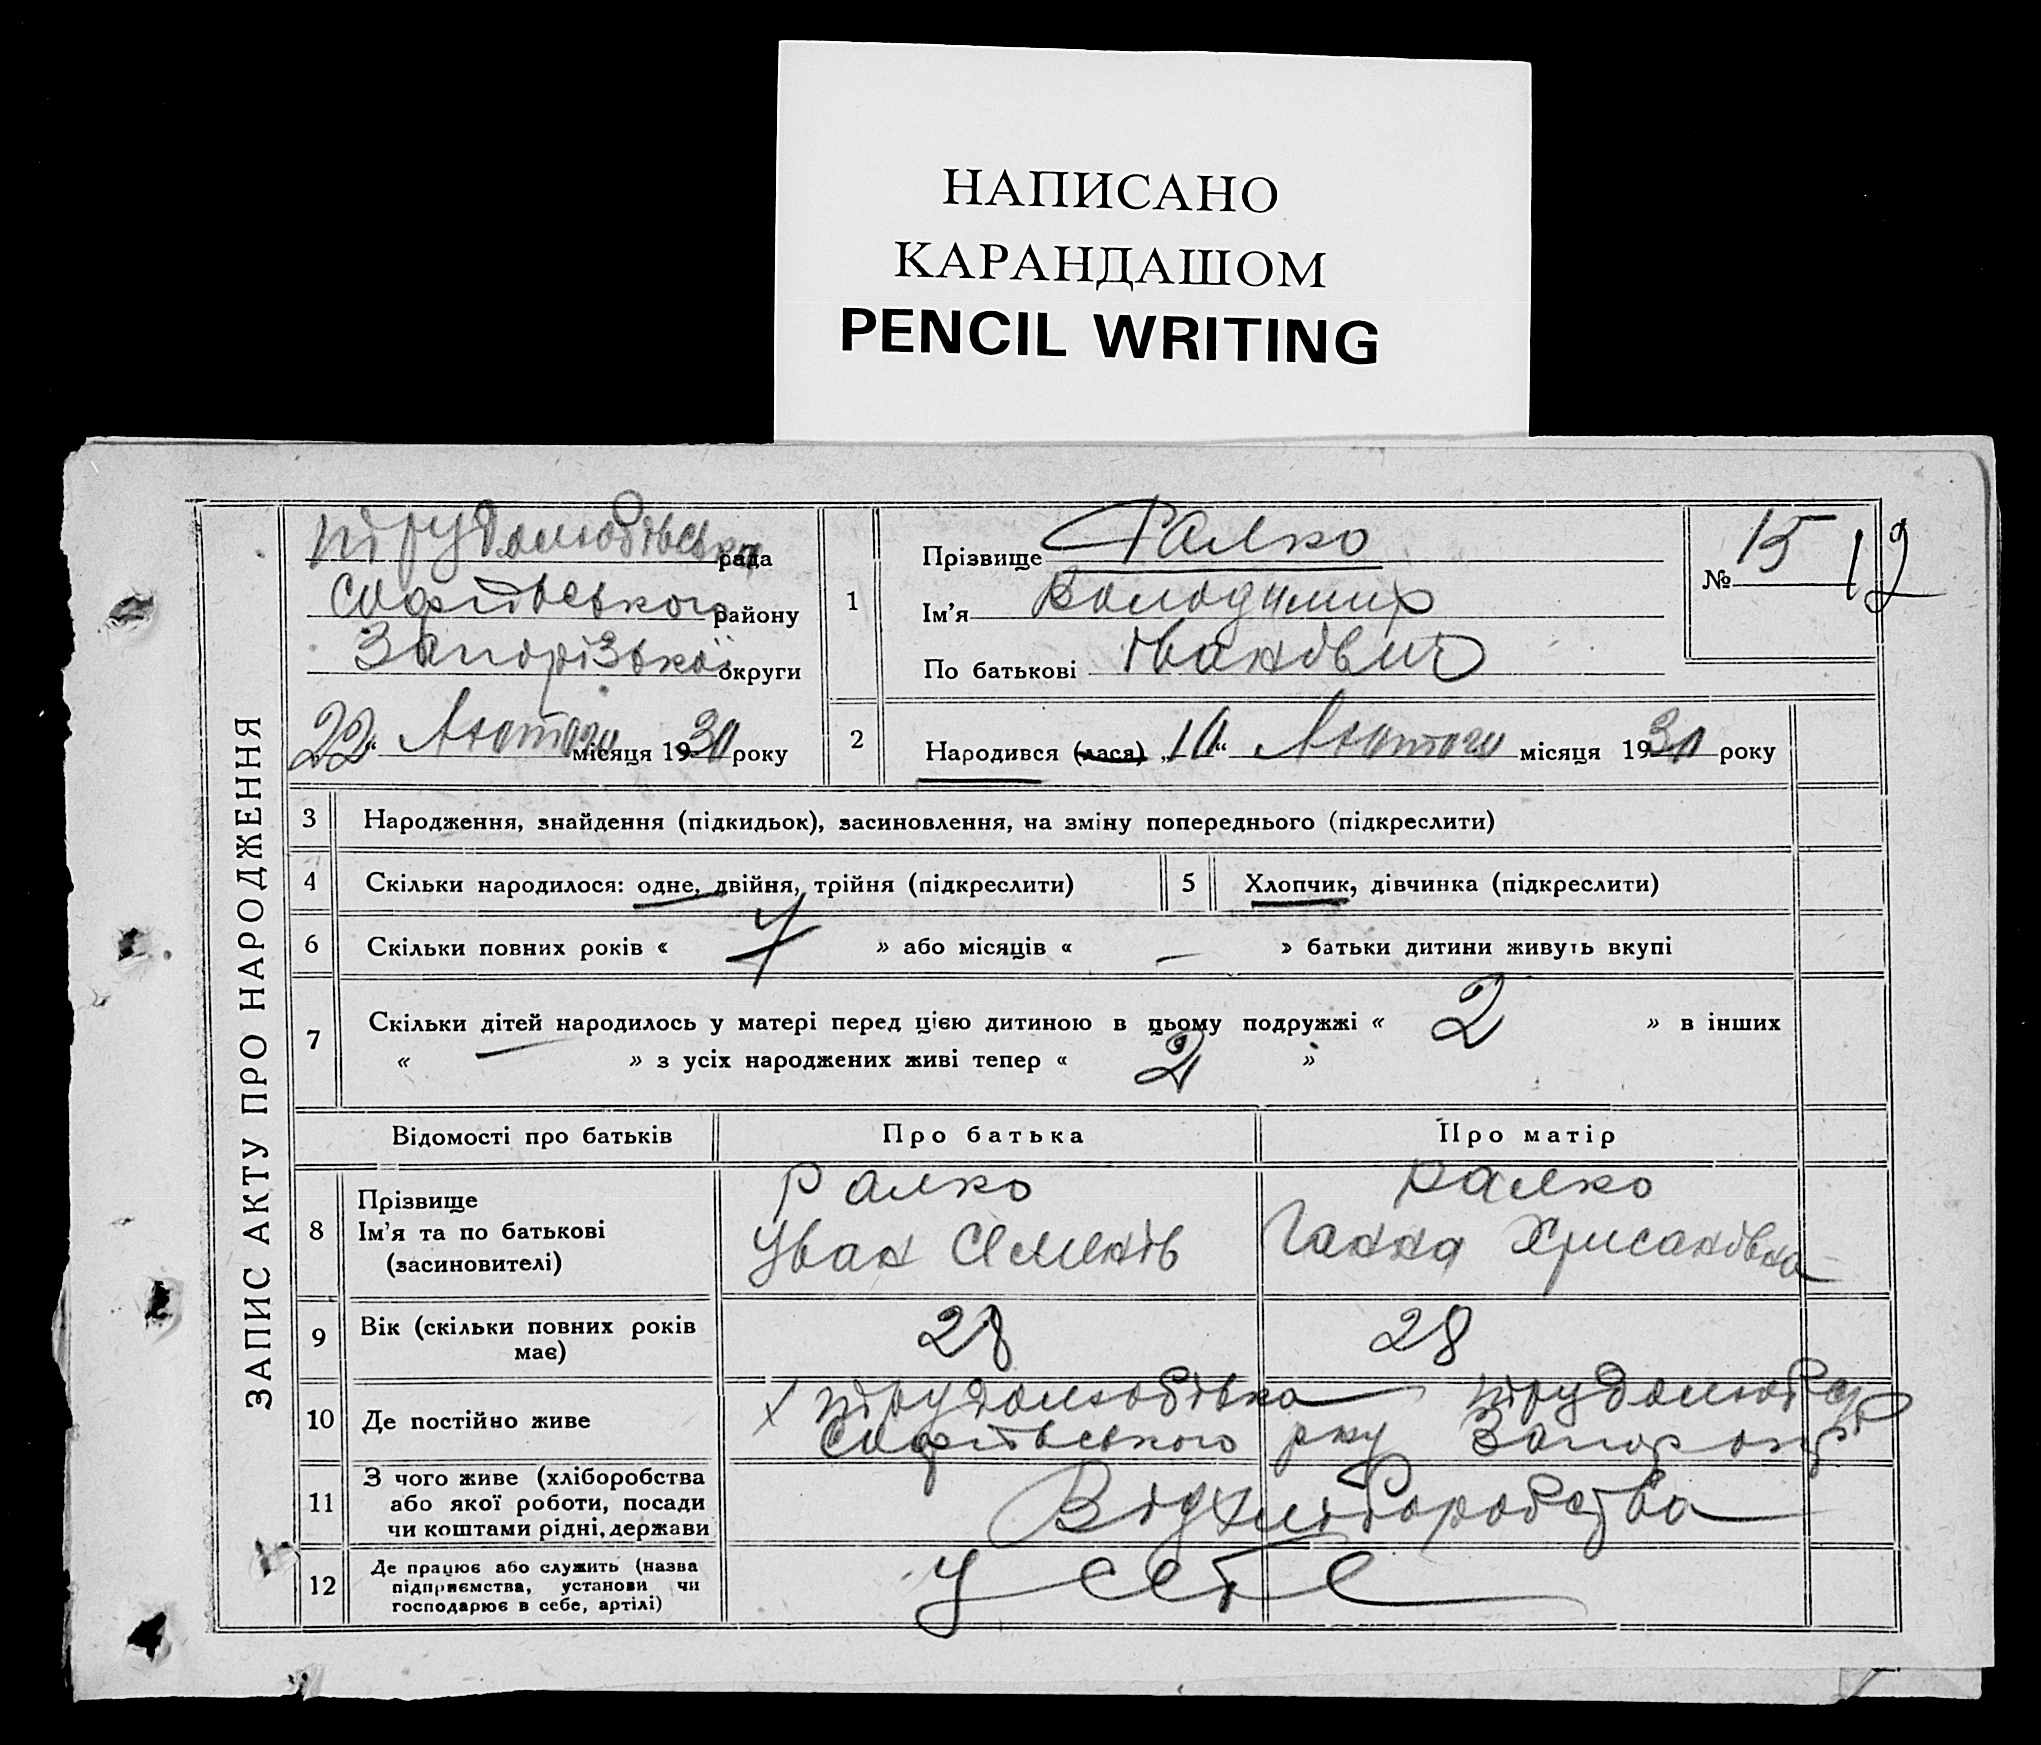 НАПИСАНО
КАРАНДАШОМ
PENCIL WRITING
ЗАПИС АКТУ ПРО НАРОДЖЕННЯ
Трудолюбівська рада
Софіївського району
Запорізької округи
22 “ Лютого місяця 1930 року
1
Прізвище Ралко
Ім’я Володимир
По батькові Іванович
№ 15
12
2
Народився (лася) „10“ Лютого місяця 1930 року
3 Народження, знайдення (підкидьок), засиновлення, на зміну попереднього (підкреслити)
4 Скільки народилося: одне, двійня, трійня (підкреслити)
5 Хлопчик, дівчинка (підкреслити)
6 Скільки повних років « » або місяців « — » батьки дитини живуть вкупі
7 Скільки дітей народилось у матері перед цією дитиною в цьому подружжі « 2 » в інших
« — » з усіх народжених живі тепер « 2 »
Відомості про батьків Про батька Про матір
8 Прізвище
Ім’я та по батькові
(засиновителі)
Ралко
Іван Семенів
Ралко
Ганна Хрисанівна
9 Вік (скільки повних років
має)
28 28
10 Де постійно живе
х Трудолюбівка Трудолюбов
Софіївського р-ну Запор окр
11 З чого живе (хліборобства
або якої роботи, посади
чи коштами рідні, держави
Від хліборобства
12 Де працює або служить (назва
підприємства, установи чи
господарює в себе, артілі)
У себе